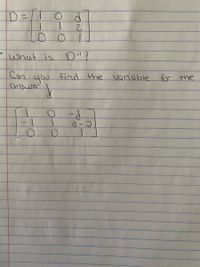 D = [1 0 d
1 1 2
0 0 1]
What is D⁻¹?
Can you find the variable for the
answer ↓
[1 0 -d
-1 1 d-2
0 0 1]